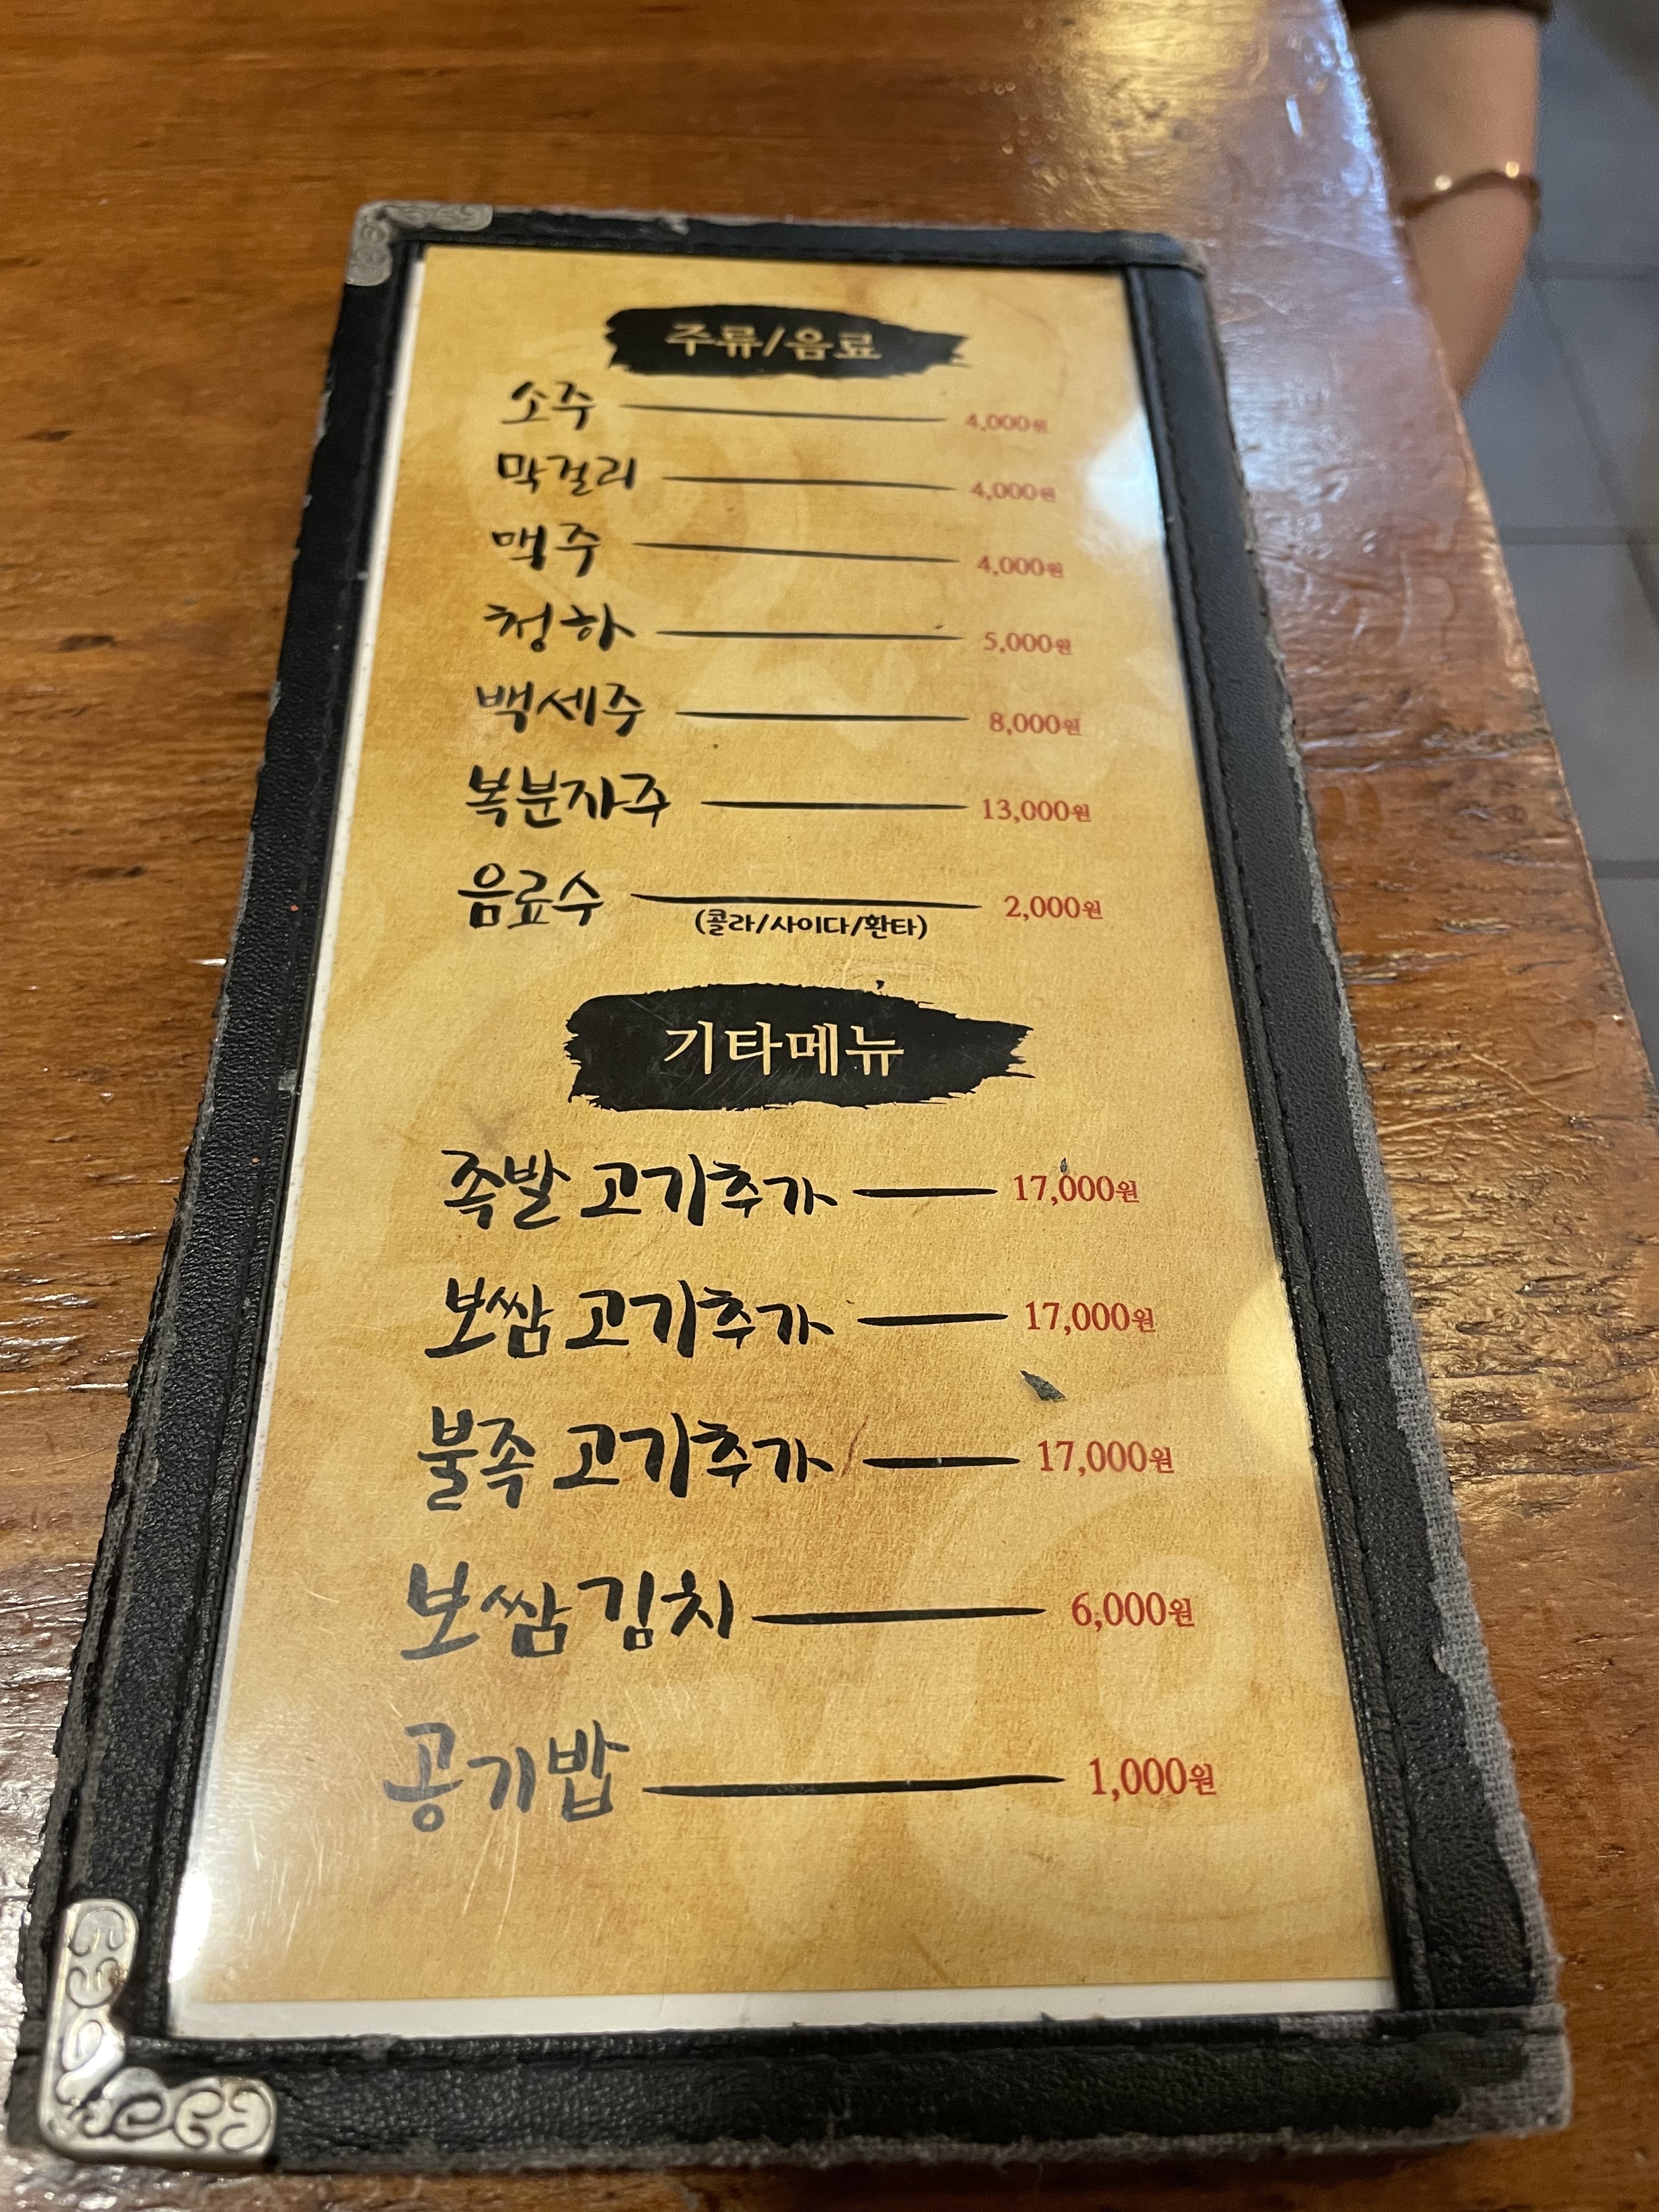 주류/음료
소주 4,000원
막걸리 4,000원
맥주 4,000원
청하 5,000원
백세주 8,000원
복분자주 13,000원
음료수 2,000원
(콜라/사이다/환타)
기타메뉴
족발 고기추가 17,000원
보쌈 고기추가 17,000원
불족 고기추가 17,000원
보쌈김치 6,000원
공기밥 1,000원